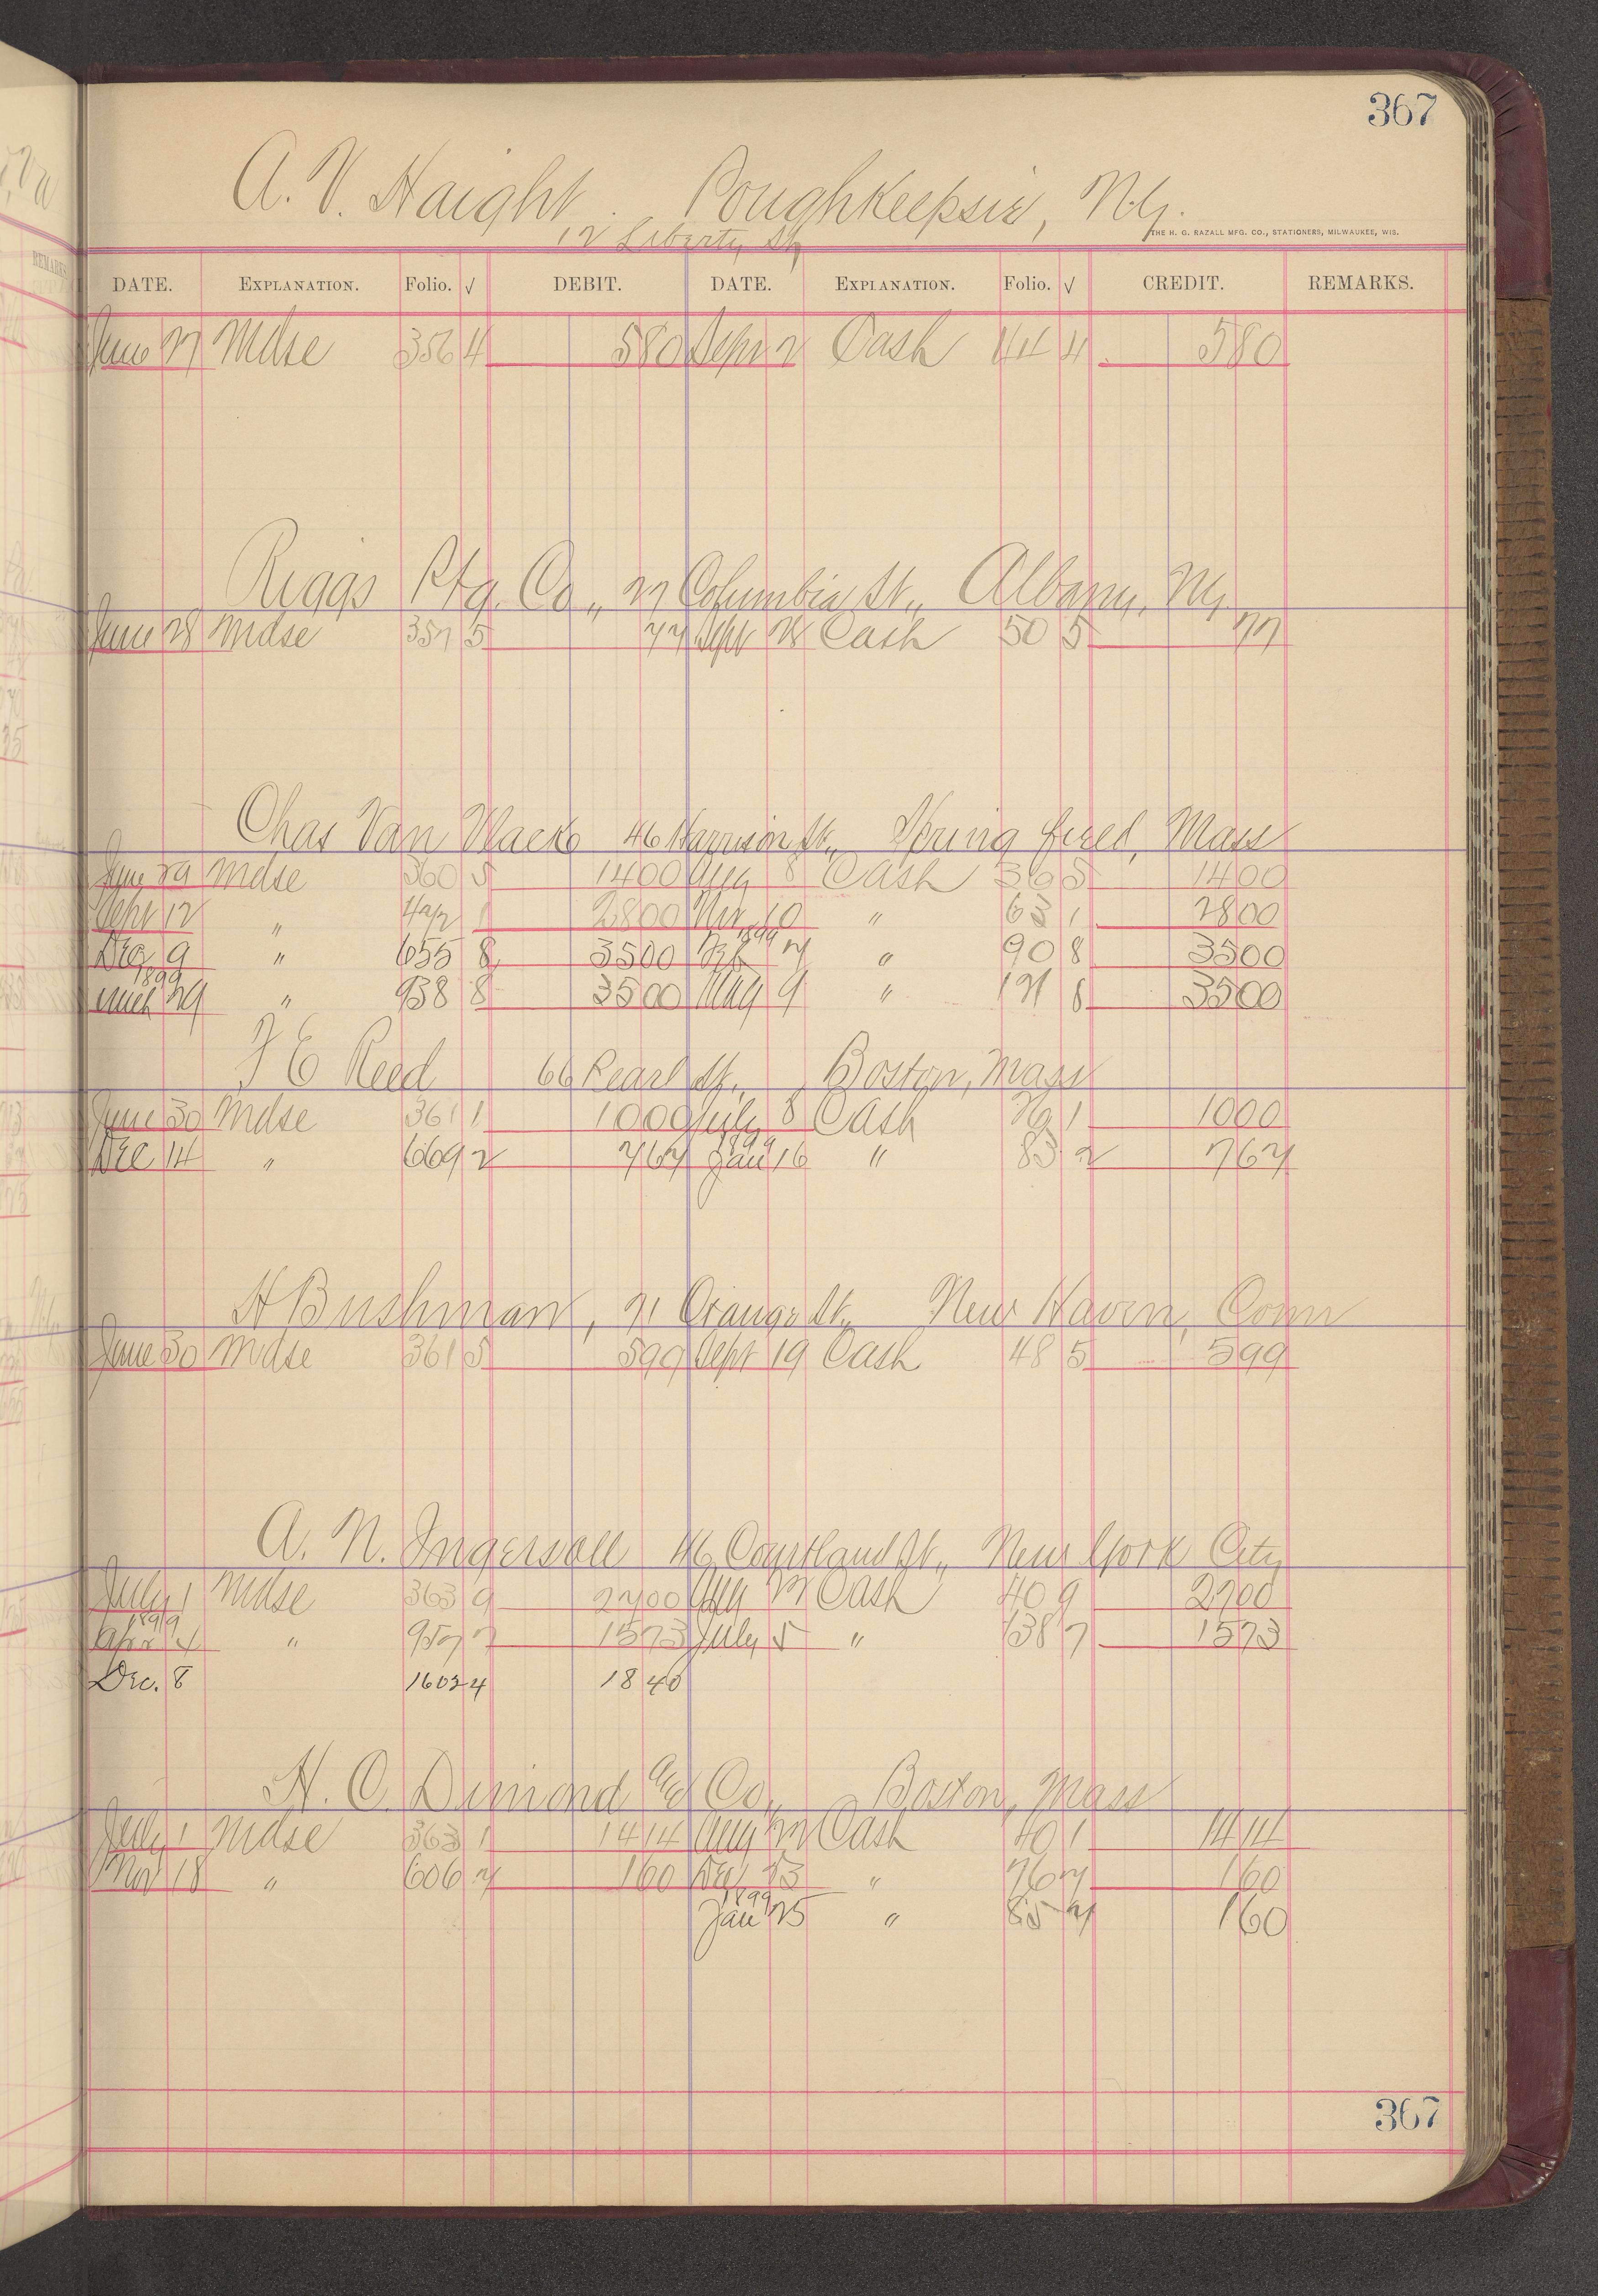 367
A. V. Haight, Poughkeepsie, N.Y.
12 Liberty St
THE H. G. RAZALL MFG. CO., STATIONERS, MILWAUKEE, WIS.
DATE. EXPLANATION. Folio. √ DEBIT. DATE. EXPLANATION. Folio. √ CREDIT. REMARKS.
June 27 Mdse 356 4 580 Sept 2 Cash 44 4 580
Riggs Ptg. Co., 27 Columbia St., Albany, N.Y.
June 28 Mdse 357 5 77 Sept 28 Cash 50 5 77
Chas Van Vlack 46 Harrison St., Springfield, Mass
June 29 Mdse 360 5 1400 Aug 8 Cash 36 5 1400
Sept 12 " 1 2800 Nov 10 " 63 1 2800
1899
Dec 9 " 655 8 3500 Feb 7 " 90 8 3500
1899
Mch 29 " 938 8 3500 May 9 " 121 8 3500
F E Reed 66 Pearl St., Boston, Mass
June 30 Mdse 361 1 1000 July 8 Cash 29 1 1000
1899
Dec 14 " 669 2 767 Jan 16 " 83 2 767
H Bushman, 71 Orange St., New Haven, Conn
June 30 Mdse 361 5 599 Sept 19 Cash 48 5 599
A. N. Ingersoll 46 Courtland St., New York City
July 1 Mdse 363 9 2700 Aug 22 Cash 40 9 2700
1899
Apr 4 " 957 7 1573 July 5 " 138 7 1573
Dec. 8 1602 4 1840
H. C. Dimond and Co., Boston, Mass
July 1 Mdse 363 1 1414 Aug 22 Cash 40 1 1414
Nov 18 " 606 7 160 Dec 23 " 76 7 160
1899
Jan 25 " 85 7 160
367